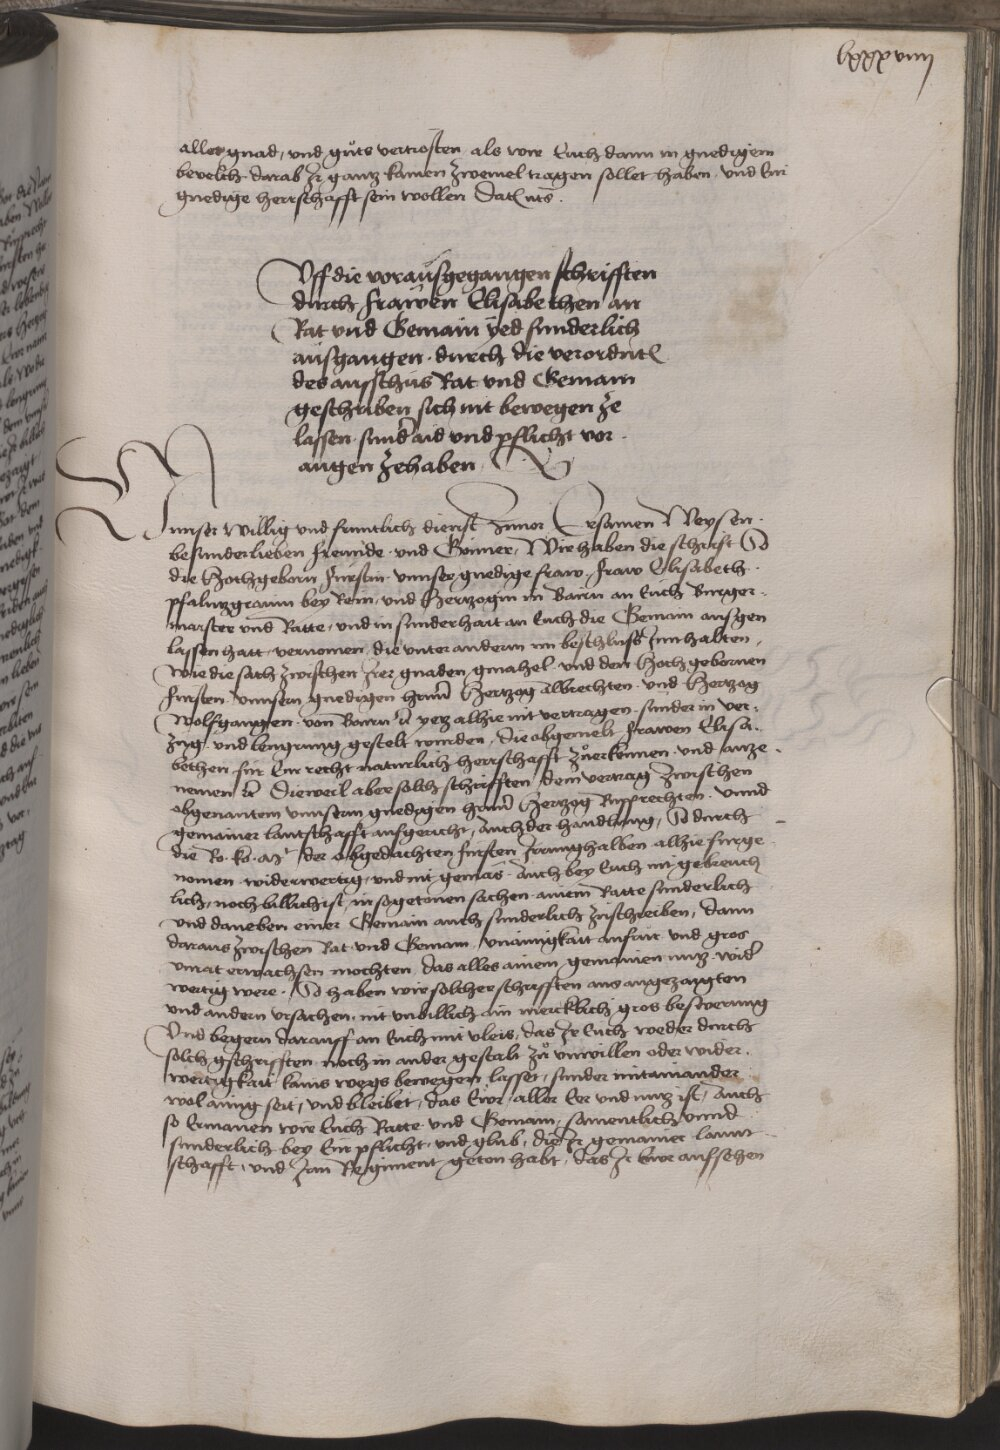 lxxxviiii
aller gnad, und guts vertrosten als wir Euch dann in gnedigem
bevelch darab Ir gantz kainen zweivel tragen sollet haben und Eur
gnedige herrschafft sein wollen Dat(um) uts.
Uff die vorausgegangen schrifften
durch frawen Elisabethen an
Rat und Gemain yed sunderlich
ausgangen durch die verordnt(en)
des ausschus Rat und Gemain
geschriben sich nit bewegen ze
lassen sund(er) aid und pflicht vor
augen zehaben
Unnser willig und fruntlich dienst zuvor Ersamen Weysen
besunder lieben freunde und Gonner, Wir haben die schrift So
die Hochgeborn furstin unnser gnedige fraw, fraw Elisabeth
pfaltzgravin bey Rein, und Hertzogin in Bairn an Euch Burger-
maister und Ratte, und in sunderhait an Euch die Gemain ausgen
lassen hatt, vernomen, die unter anderm im beschluss Innhalten,
wie die sach zwischen Irer gnaden gmahel und den Hochgebornen
fursten unnsern gnedigen herrn Hertzog Albrechten und Hertzog
Wolfgangen von Bairn etc yetz alhie nit vertragen sunder in ver-
zug und lengrung gestelt wurden, die obgemelt frawen Elisa-
bethen fur Eur recht naturlich herrschafft zuerkennen und anze-
nemen etc Dieweil aber solh schrifften, dem vertrag zwischen
obgenantem unnserm gnedigen herrn Hertzog Rupprechten unnd
gemainer lantschafft aufgericht, Auch der handlung, So durch
die Ro. ko. Mt. der obgedachten fursten Irrung halben alhie furge-
nomen widerwertig, und nit gemäs Auch bey Euch nit gebreuch
lich, noch billich ist, in sogetonen sachen ainem Ratte sunderlich
und daneben einer Gemain auch sunderlich zuschreiben, dann
daraus zwischen Rat und Gemain unainigkait anfur und gros
unrat erwachsen mochten das alles ainem gemainen nutz wider
wertig were. So haben wir solcher schrifften aus angezaigten
und andern ursachen, nit unbillich ain mercklich gros beswerung
Und begern darauff an Euch mit vleis, das Ir Euch weder durch
solch gschrifften noch in ander gestalt zu unwillen oder wider-
wertigkait kains wegs bewegen lasset, sunder mitainander
wol ainig seit, und bleibet, das Ewr aller Eer und nutz ist, Auch
so Ermanen wir Euch Ratte und Gemain, samentlich unnd
sunderlich bey Eur pflicht, und glub, die Ir gemainer lannt
schafft, und zum Regiment geton habt, das Ir Ewr aufsehen